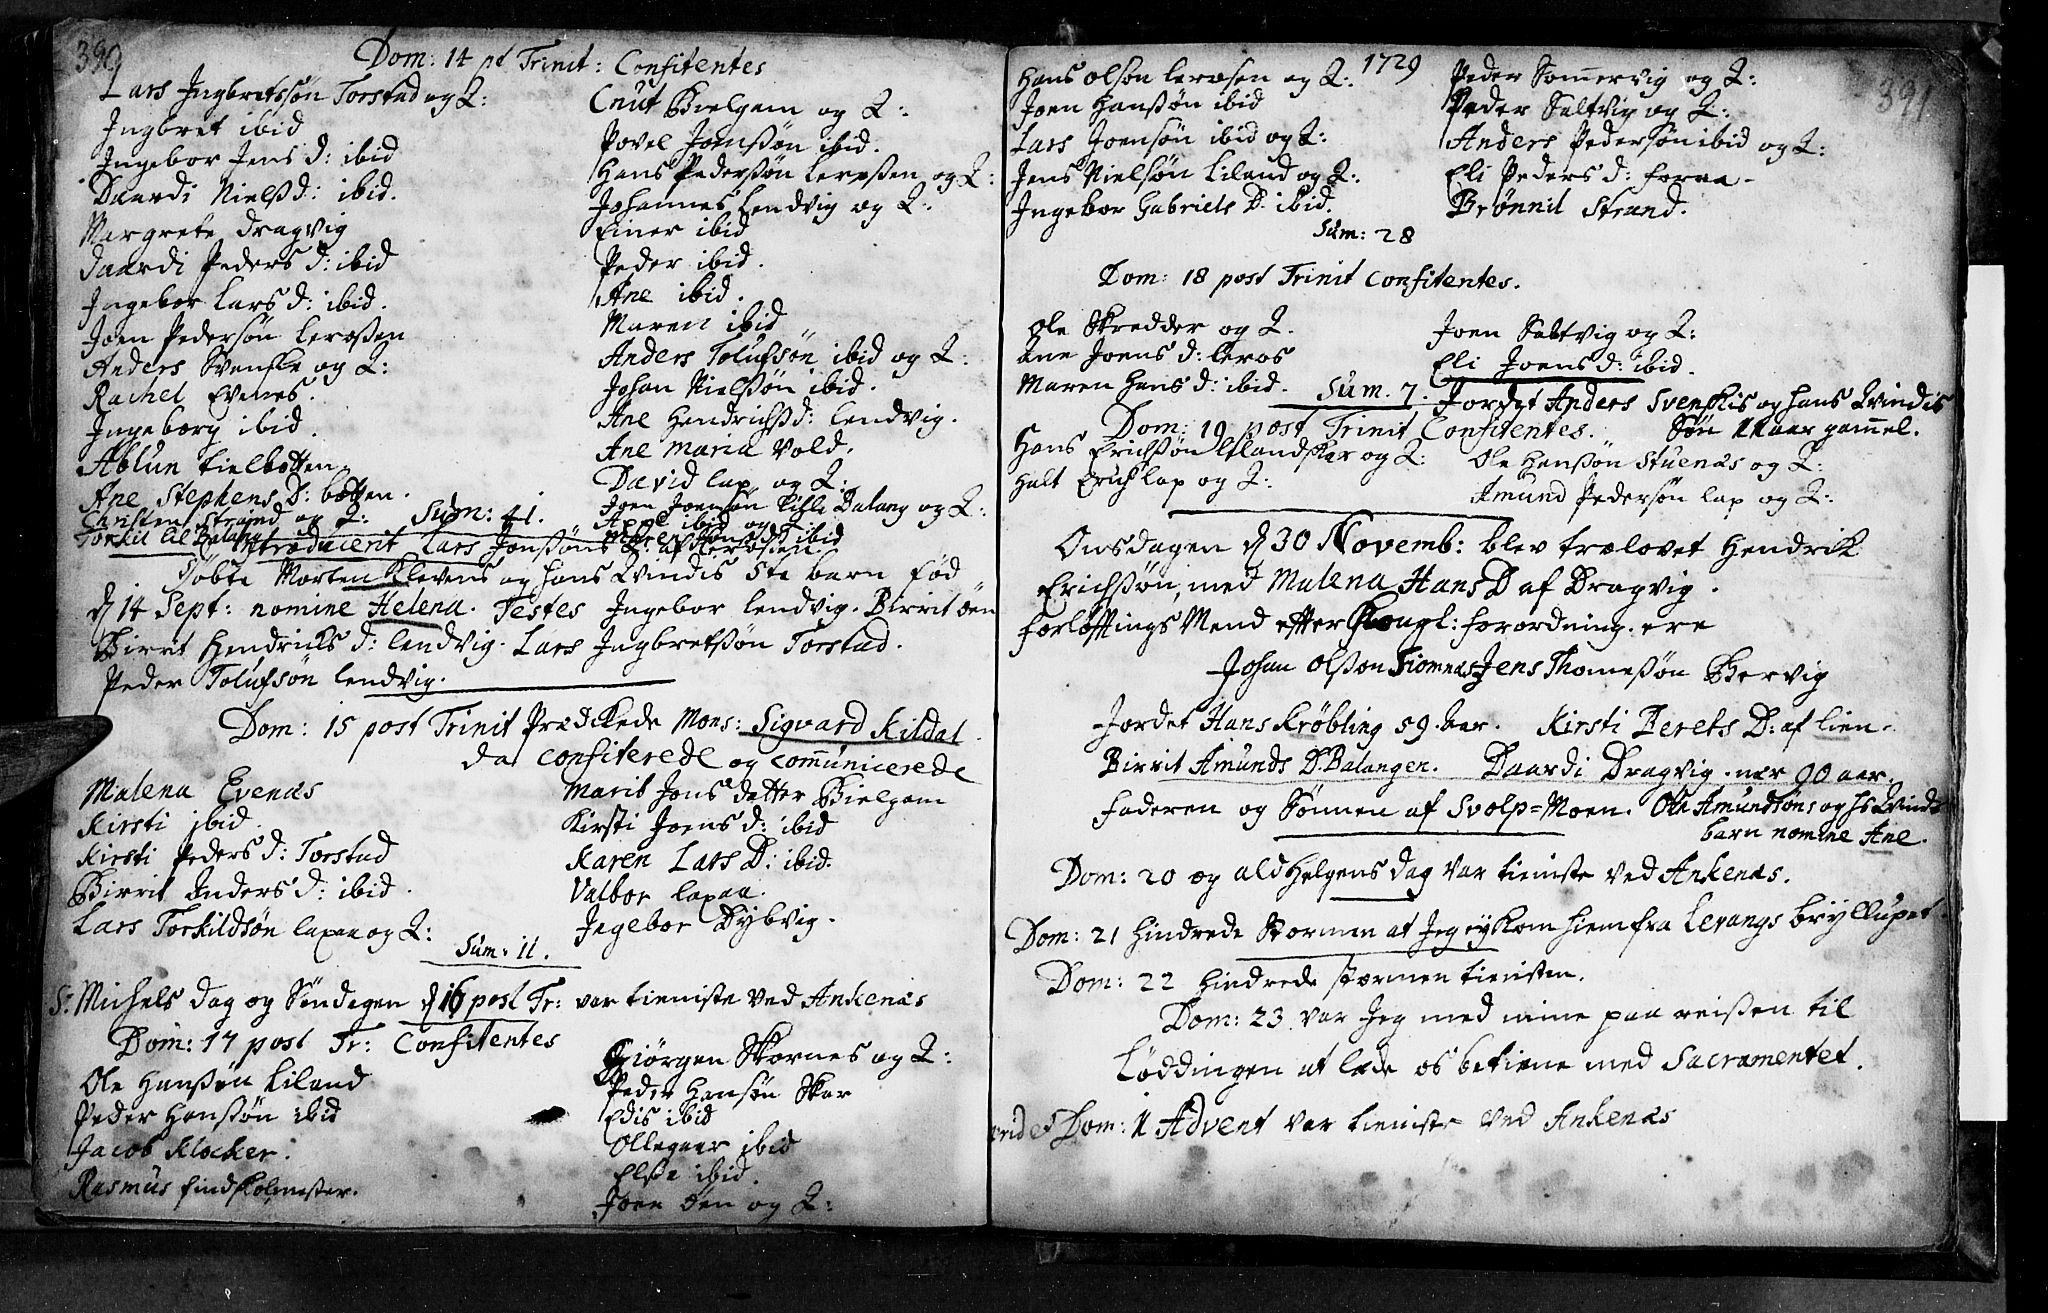 390
Dom: 14 pt Trinit: Confitentes
Lars Ingbretssøn Torstad og Q:
Ingbret ibid
Ingebor Jens d: ibid
Daardi Nielsd: ibid.
Margrete Dragvig
Daardi Peders d: ibid
Ingebor Lars d: ibid.
Joen Pedersøn Lerossen
Anders Svenske og Q:
Rachel Evenes.
Ingeborg ibid.
Ablun Kielbotten
Ane Stephens D: botten.
Christen Strand og Q: Sum: 41.
Torkil lil Balang
Cnut Bielgam og Q:
Povel Jonssøn ibid.
Hans Pederssøn Lerossen og Q:
Johannes Lendvig og Q:
Einer ibid
Peder ibid.
Ane ibid.
Maren ibid
Anders Tolufsøn ibid og Q:
Johan Nielssøn ibid.
Ane Hendrichsd: Lendvig.
Ane Maria Vold.
David lap og Q:
Joen Joensøn Lille Balang og Q:
Appel ibid og
Maren Hans d: ibid
Introducerit Lars Jonssøns Q: af Lerossen.
Døbte Morten Elevens og hans Qvindis 5te barn fød
d 14 Sept: nomine Helena. Testes Ingebor Lendvig. Birrit Øen
Birrit Hendricks d: Lendvig. Lars Ingbretssøn Torstad.
Peder Tolufsøn Lendvig.
Dom: 15 post Trinit Prædickede Mons: Sigvard Kildal.
da confiterede og communicerede
Malena Evenæs
Kirsti ibid.
Kirsti Peders d: Torstad
Birrit Anders d: ibid.
Lars Torkildsøn lapaa og Q:
Sum: 11.
Marit Jons datter Bielgam
Kirsti Joens d: ibid
Karen Lars D: ibid.
Valbor lapaa.
Ingebor Dybvig.
S: Michels dag og Søndagen d 16 post Tr: var tieniste ved Ankenæs
Dom: 17 post Tr: Confitentes
Ole Hanssøn Liland
Peder Hanssøn ibid
Jacob Klocker.
Rasmus Findskolmester.
Giørgen Skornes og Q:
Peder Hansøn Skar
Edis ibid
Ollegaar ibid
Elsse ibid.
Joen Øen og Q:
1729
391
Hans Olson Lerosen og Q:
Joen Hanssøn ibid
Lars Joensøn ibid og Q:
Jens Nielsøn Liland og Q:
Ingebor Gabriels D. ibid.
Peder Sommervig og Q:
Peder Saltvig og Q:
Anders Pedersøn ibid og Q:
Eli Peders d: foraa-
Brønnil Strand.
Sum: 28
Dom: 18 post Trinit Confitentes.
Ole Skredder og Q.
Ane Joens d: Leros
Maren Hans d: ibid. Sum. 7.
Joen Saltvig og Q:
Eli Joens d: ibid.
Jordet Anders Svenskis og hans Qvindis
Søn 11 aar gammel.
Dom: 19 post Trinit Confitentes.
Hans Erichssøn og Q:
Halt Erich lap og Q:
Ole Hanssøn Stuenæs og Q:
Amund Pedersøn lap og Q:
Onsdagen d 30 Novemb: blev trolovet Hendrik
Erichssøn, med Malena Hans D af Dragvig.
forløftings Mend efter Kongl: forordning. ere
Johan Olsson Jens Thomessøn Bervig
Jordet Hans Krøbling 59 Aar. Kirsti Berets D: af Lien.
Birrit Amunds D. Balangen. Daardi Dragvig. nær 90 aar.
Faderen og Sønnen af Svolp=Moen. Ole Amundsøns og hs Qvinds
barn nomine Ane.
Dom: 20 og ald Helgens dag var tieniste ved Ankenæs.
Dom: 21 hindrede Stormen at Jeg ey kom hiem fra Levangs bryllupet.
Dom: 22 hindrede stormen tienisten.
Dom: 23 var Jeg med mine paa reissen til
Løddingen at lade os betiene med Sacramentet.
Dom: 1 Advent var tieniste ved Ankenæs